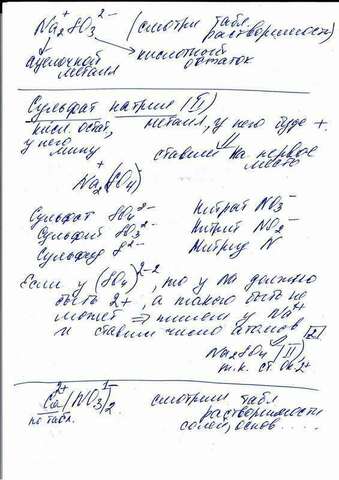 Na₂⁺SO₃²⁻ (смотри табл. растворимости)
щелочной металл
кислотный остаток
Сульфат натрия (II)
кисл. остат, у него минус
металл, у него буде +.
ставим на первое место
Na₂⁺(SO₄)
Сульфат SO₄²⁻ Нитрат NO₃⁻
Сульфит SO₃²⁻ Нитрит NO₂⁻
Сульфид S²⁻ Нитрид N
Если у (SO₄)²⁻, то у Na должно
быть 2+, а такого быть не
может ⇒ пишем у Na⁺
и ставим число атомов 2
Na₂SO₄ (II),
т.к. ст. ок. 2+
Ca²⁺(NO₃)₂¹⁻ смотрим табл
по табл. растворимости
солей, основ.....